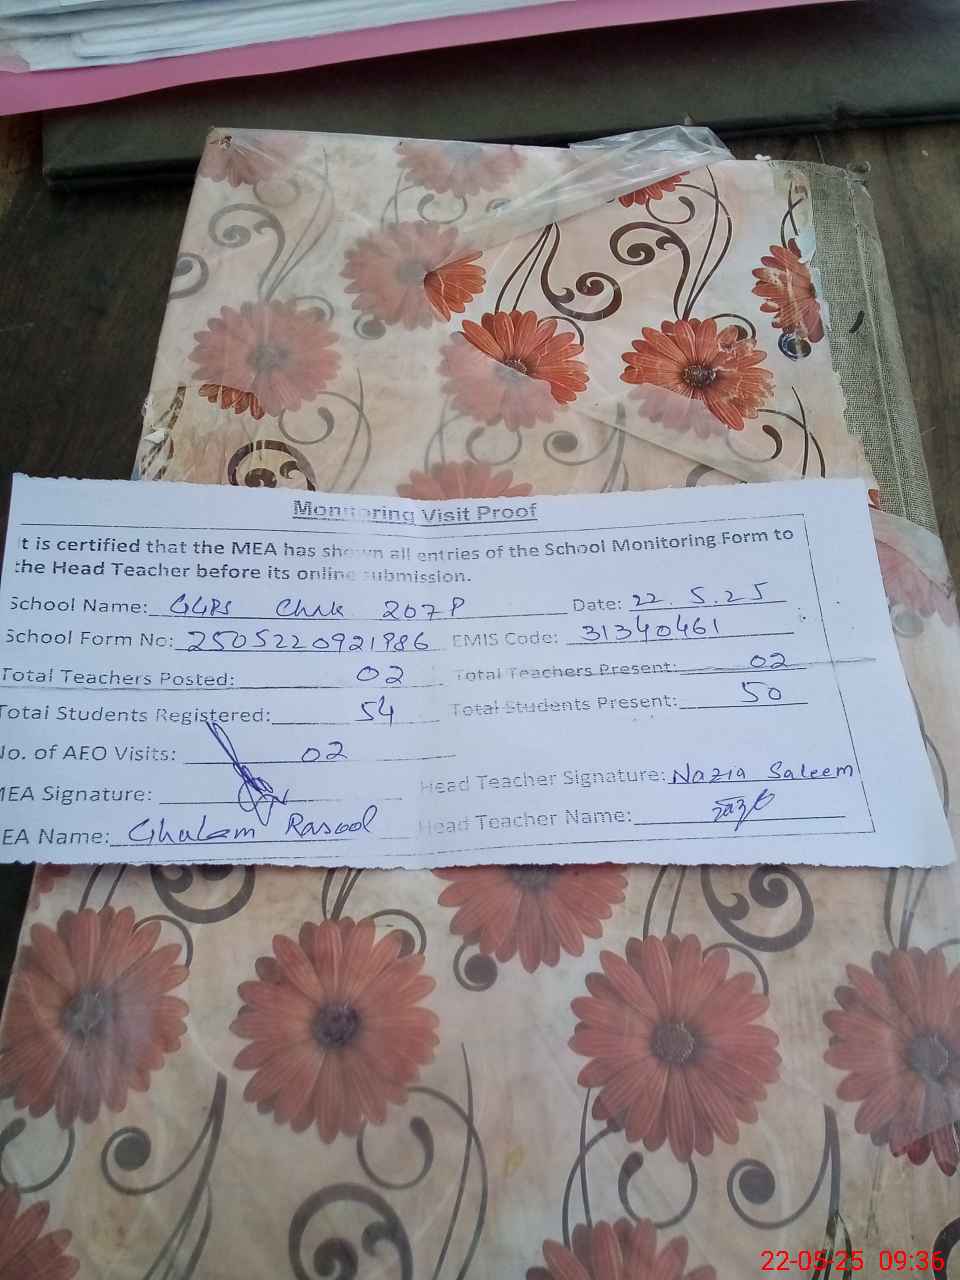 Monitoring Visit Proof
t is certified that the MEA has shown all entries of the School Monitoring Form to
the Head Teacher before its online submission.
School Name: GGPS Chak 207 P Date: 22.5.25
School Form No: 2505220921986 EMIS Code: 31340461
Total Teachers Posted: 02 Total Teachers Present: 02
Total Students Registered: 54 Total Students Present: 50
No. of AEO Visits: 02
MEA Signature: Head Teacher Signature: Nazia Saleem
EA Name: Ghulam Rasool Head Teacher Name:
22-05-25 09:36